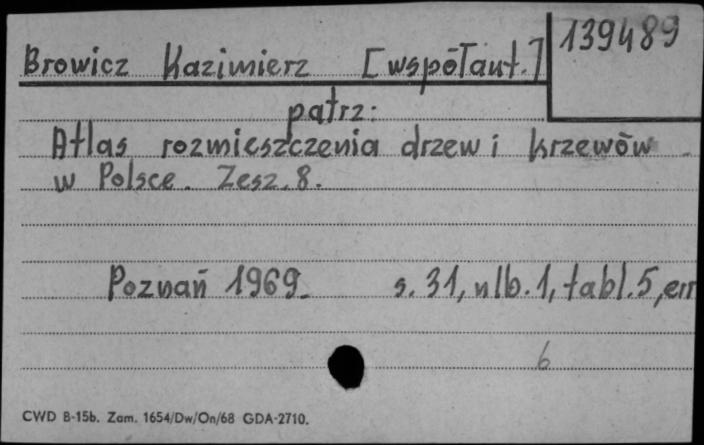 139489
Browicz Kazimierz [współaut.]
patrz:
Atlas rozmieszczenia drzew i krzewów
w Polsce. Zesz. 8.
Poznań 1969. s. 31, nlb. 1, tabl. 5, err
6
CWD B-15b. Zam. 1654/Dw/On/68 GDA-2710.